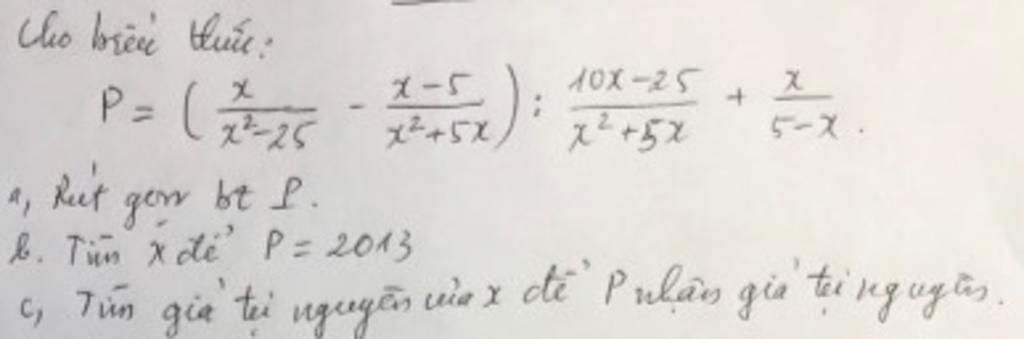 Cho biểu thức:
P = ( x/(x²-25) - (x-5)/(x²+5x) ) : (10x-25)/(x²+5x) + x/(5-x).
a, Rút gọn bt P.
b. Tìm x để P = 2013
c, Tìm giá trị nguyên của x để P nhận giá trị nguyên.